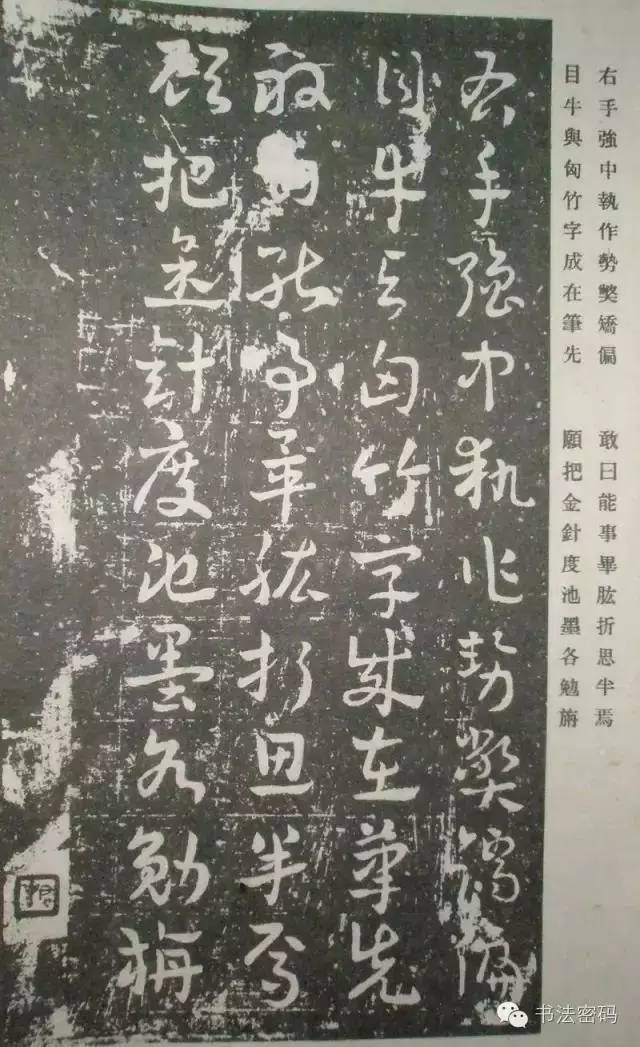 右手強中執作勢獘矯偏　敢曰能事畢肱折思半焉
目牛與匈竹字成在筆先　願把金針度池墨各勉旃
右手強中執作勢獘矯偏
目牛與匈竹字成在筆先
敢曰能事畢肱折思半焉
願把金針度池墨各勉旃
书法密码